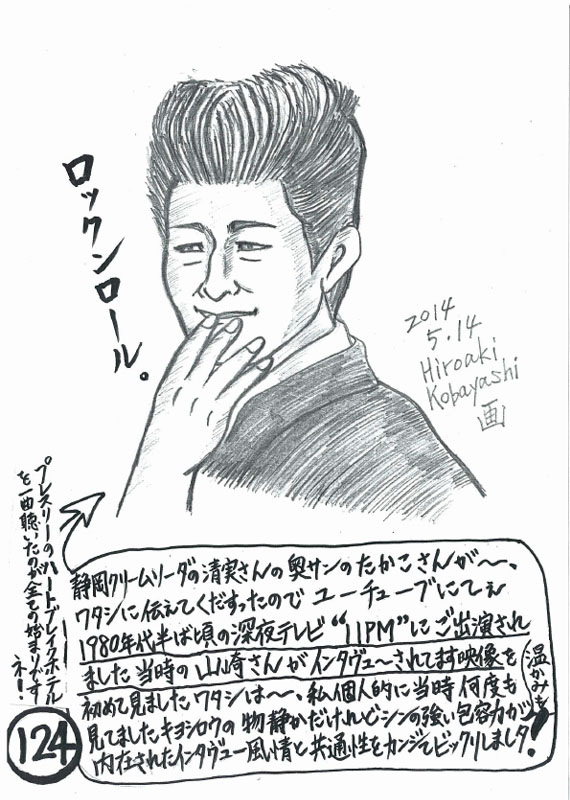 ロックンロール。
2014
5.14
Hiroaki
Kobayashi
画
プレスリーのハートブレイクホテル
を一曲聴いたのが全ての始まりです
ネ!
静岡クリームソーダの清実さんの奥サンのたかこさんが〜、
ワタシに伝えてくだすったので ユーチューブにてぇ
1980年代半ば頃の深夜テレビ“11PM”にご出演され
ました当時の山崎さんがインタヴューされてます映像を
初めて見ましたワタシは〜、私個人的に当時何度も
見てましたキヨシロウの物静かだけれどシンの強い包容力が
温かみも
内在されたインタヴュー風情と共通性をカンジてビックリしましタ!
124